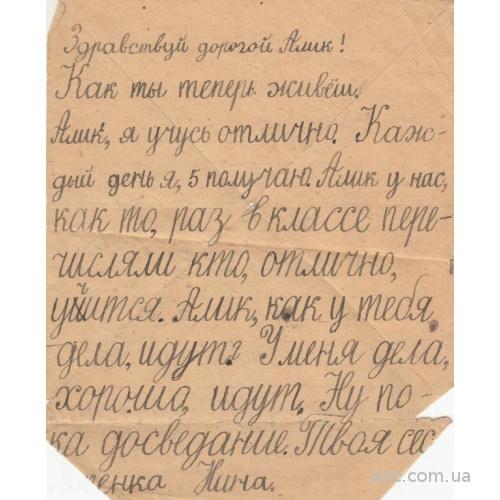 Здравствуй дорогой Алик!
Как ты теперь живёш.
Алик, я учусь отлично. Каж-
дый день я, 5 получаю. Алик у нас,
как то, раз в классе пере-
числяли кто, отлично,
учится. Алик, как у тебя
дела, идут? У меня дела,
хорошо, идут. Ну по-
ка досведание. Твоя сес
ренка Нина.